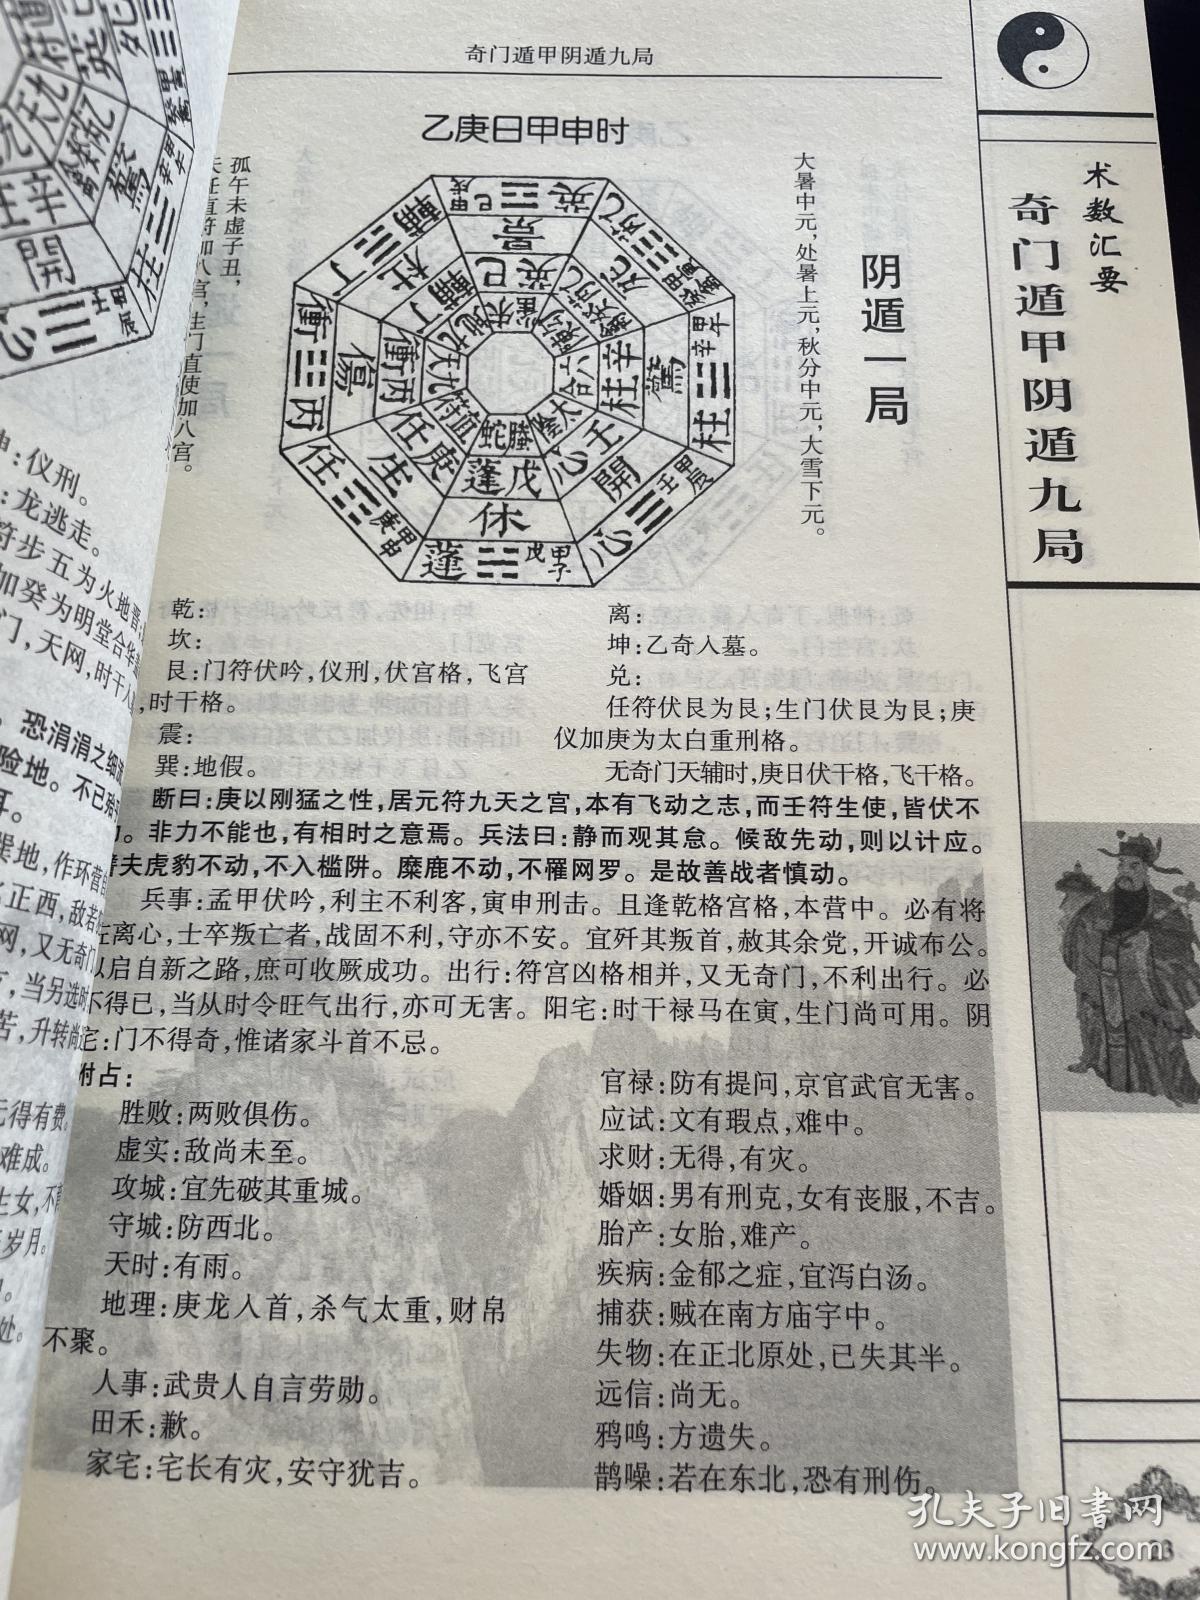 奇门遁甲阴遁九局
乙庚日甲申时
术数汇要
奇门遁甲阴遁九局
阴遁一局
大暑中元，处暑上元，秋分中元，大雪下元。
孤午未虚子丑，
天任直符加八宫，生门直使加八宫。
英 ☲ 巳 甲戌
景
英 巳
雀 朱
乙
芮
死
柱 ☱ 辛 甲午
驚
柱 辛
六合
心 ☰ 壬 甲辰
開
心 壬
太
蓬 ☵ 戊 甲子
休
蓬 戊
蛇 螣
任 ☶ 庚 甲申
生
任 庚
符 值
衝 ☳ 丙
傷
衝 丙
九天
輔 ☴ 丁
杜
輔 丁
九地
乾：
坎：
艮：门符伏吟，仪刑，伏宫格，飞宫
，时干格。
震：
巽：地假。
离：
坤：乙奇入墓。
兑：
任符伏艮为艮；生门伏艮为艮；庚
仪加庚为太白重刑格。
无奇门天辅时，庚日伏干格，飞干格。
断曰：庚以刚猛之性，居元符九天之宫，本有飞动之志，而壬符生使，皆伏不
。非力不能也，有相时之意焉。兵法曰：静而观其怠。候敌先动，则以计应。
夫虎豹不动，不入槛阱。麋鹿不动，不罹网罗。是故善战者慎动。
兵事：孟甲伏吟，利主不利客，寅申刑击。且逢乾格宫格，本营中。必有将
离心，士卒叛亡者，战固不利，守亦不安。宜歼其叛首，赦其余党，开诚布公。
以启自新之路，庶可收厥成功。出行：符宫凶格相并，又无奇门，不利出行。必
不得已，当从时令旺气出行，亦可无害。阳宅：时干禄马在寅，生门尚可用。阴
宅：门不得奇，惟诸家斗首不忌。
附占：
胜败：两败俱伤。
虚实：敌尚未至。
攻城：宜先破其重城。
守城：防西北。
天时：有雨。
地理：庚龙入首，杀气太重，财帛
不聚。
人事：武贵人自言劳勋。
田禾：歉。
家宅：宅长有灾，安守犹吉。
官禄：防有提问，京官武官无害。
应试：文有瑕点，难中。
求财：无得，有灾。
婚姻：男有刑克，女有丧服，不吉。
胎产：女胎，难产。
疾病：金郁之症，宜泻白汤。
捕获：贼在南方庙宇中。
失物：在正北原处，已失其半。
远信：尚无。
鸦鸣：方遗失。
鹊噪：若在东北，恐有刑伤。
：仪刑。
：龙逃走。
符步五为火地晋；
加癸为明堂合华盖
门，天网，时干入
。恐涓涓之细流
险地。不已殆
耳。
巽地，作环营
正西，敌若
网，又无奇门
，当另选时
苦，升转尚
无得有费。
难成。
生女，不
岁月。
处。
辛
開
心 ☰ 壬 甲辰
驚
孔夫子旧书网
www.kongfz.com
23